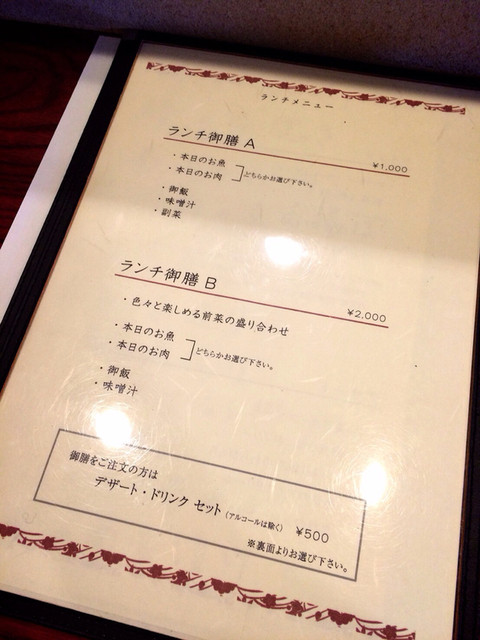 ランチメニュー
ランチ御膳 A ¥1,000
・本日のお魚
・本日のお肉
どちらかお選び下さい。
・御飯
・味噌汁
・副菜
ランチ御膳 B ¥2,000
・色々と楽しめる前菜の盛り合わせ
・本日のお魚
・本日のお肉
どちらかお選び下さい。
・御飯
・味噌汁
御膳をご注文の方は
デザート・ドリンク セット (アルコールは除く) ¥500
※裏面よりお選び下さい。